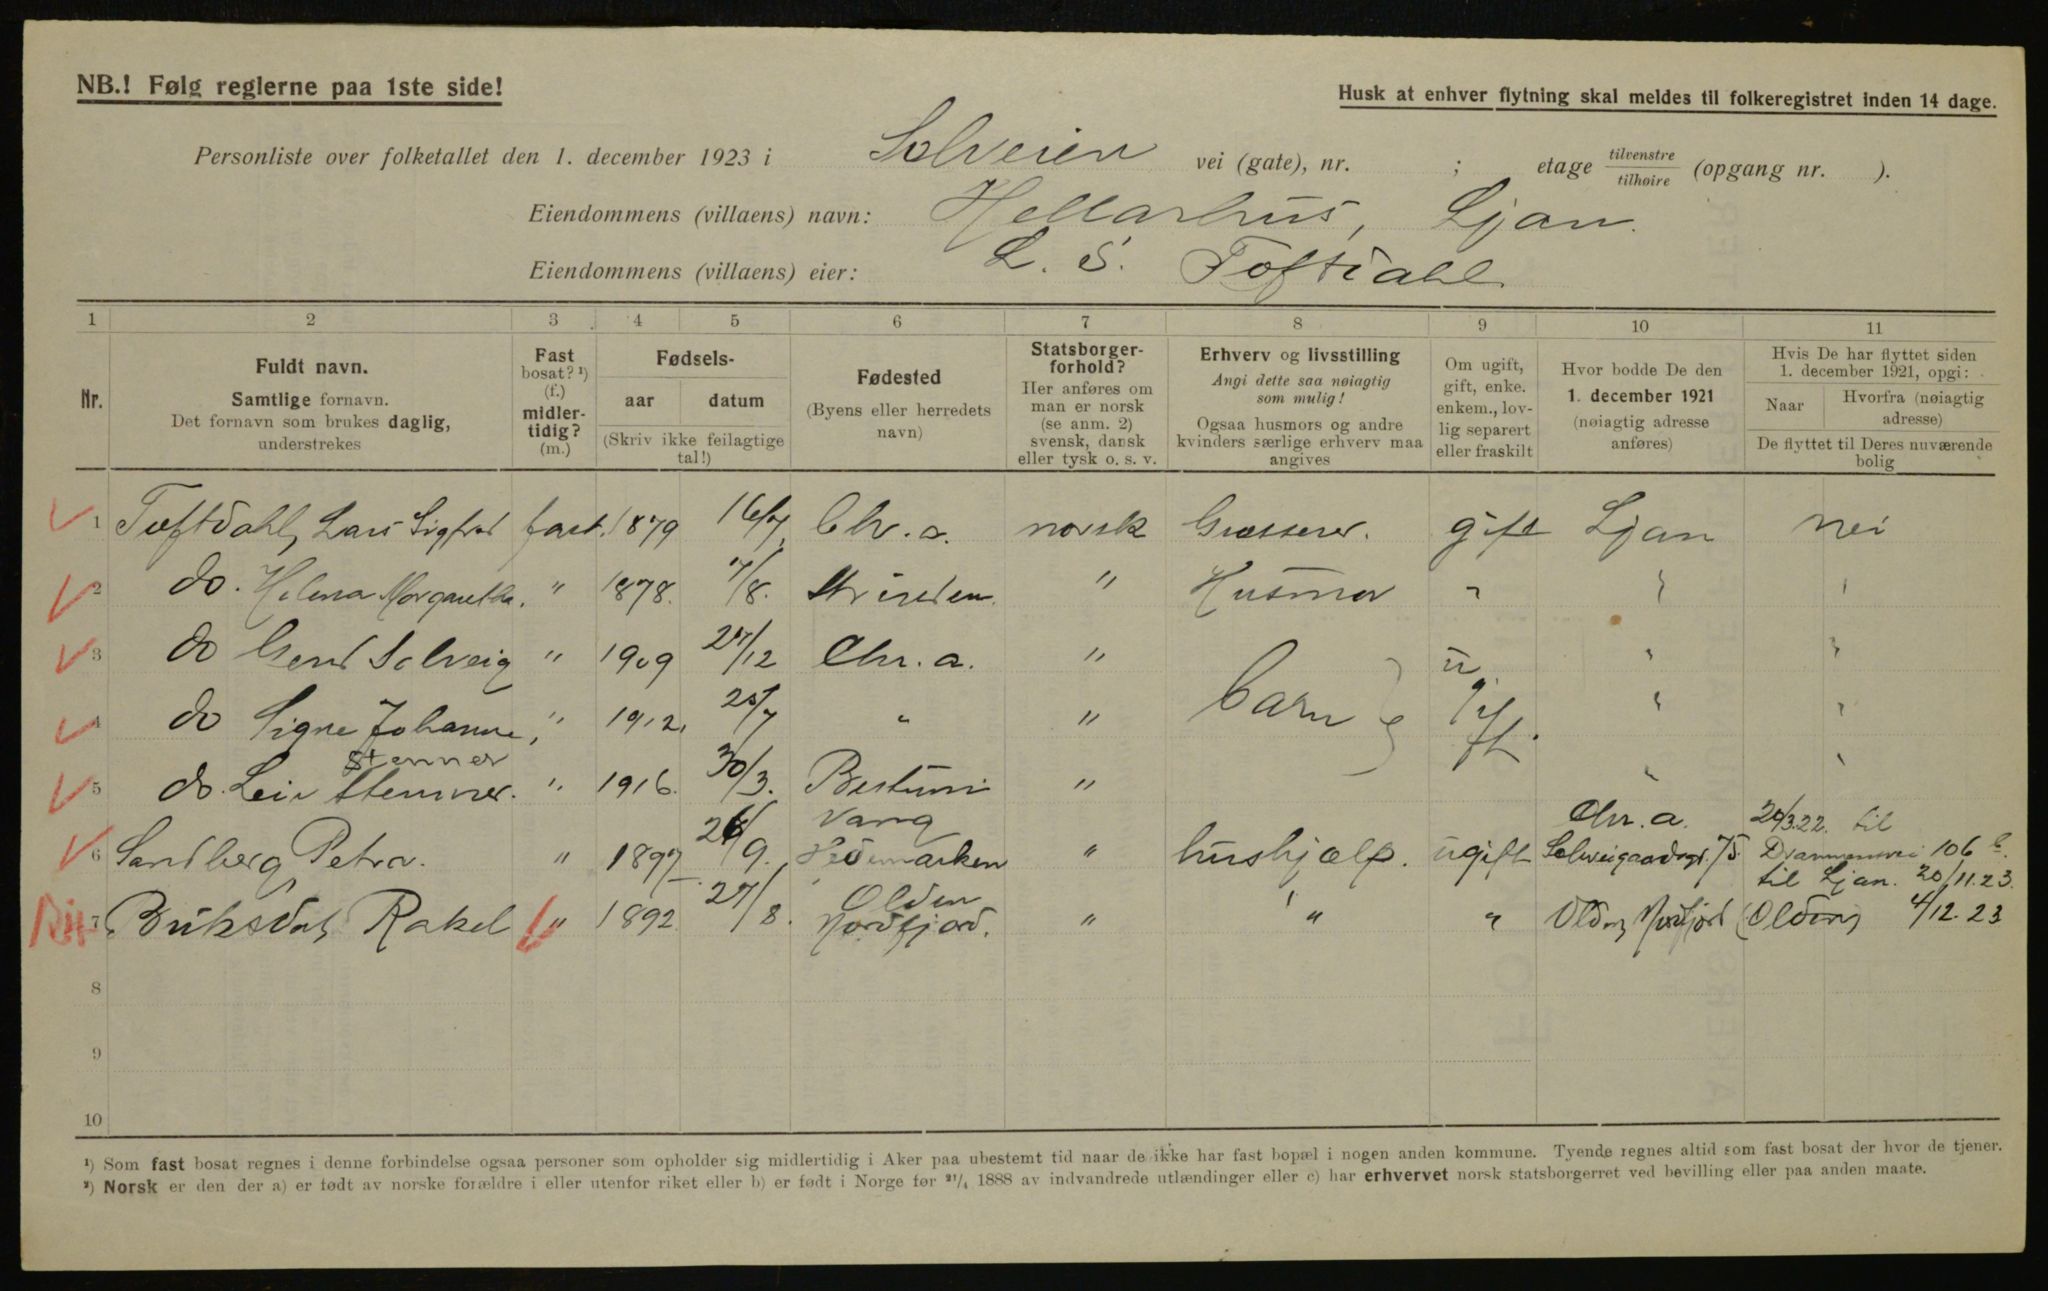 NB.! Følg reglerne paa 1ste side!
Husk at enhver flytning skal meldes til folkeregistret inden 14 dage.
Personliste over folketallet den 1. december 1923 i Solveien vei (gate), nr. ; etage tilvenstre/tilhøire (opgang nr. ).
Eiendommens (villaens) navn: Hellarhus, Ljan.
Eiendommens (villaens) eier: L. S. Toftdahl
1 2 3 4 5 6 7 8 9 10 11
Nr.
Fuldt navn.
Samtlige fornavn.
Det fornavn som brukes daglig, understrekes
Fast bosat? ¹) (f.) midlertidig? (m.)
Fødsels-
aar datum
(Skriv ikke feilagtige tal!)
Fødested
(Byens eller herredets navn)
Statsborgerforhold?
Her anføres om man er norsk (se anm. 2) svensk, dansk eller tysk o. s. v.
Erhverv og livsstilling
Angi dette saa nøiagtig som mulig!
Ogsaa husmors og andre kvinders særlige erhverv maa angives
Om ugift, gift, enke. enkem., lovlig separert eller fraskilt
Hvor bodde De den 1. december 1921 (nøiagtig adresse anføres)
Hvis De har flyttet siden 1. december 1921, opgi:
Naar Hvorfra (nøiagtig adresse)
De flyttet til Deres nuværende bolig
1 Toftdahl, Lars Sigfred fast. 1879 16/7 Chr.a. norsk Grosserer. gift Ljan nei
2 do. Helena Margaretha. " 1878. 7/8. " Husmor " " "
3 do Gerd Solveig " 1909 27/12 Chr.a. " Barn ugift. " "
4 do Signe Johanne, " 1912. 25/7 " " " "
Stenner
5 do. Leiv Stenner. " 1916. 30/3. Bestum " " "
6 Sandberg Petra. " 1897 /9. Vang Hedemarken " hushjælp. ugift Chr.a. 75. 20/3.22. til Drammensvei 106 til Ljan. 20/11.23.
7 Briksdal, Rakel " 1892 27/8. Olden Nordfjord. " " " Olden, Nordfjord (Olden) 4/12.23
8
9
10
¹) Som fast bosat regnes i denne forbindelse ogsaa personer som opholder sig midlertidig i Aker paa ubestemt tid naar de ikke har fast bopæl i nogen anden kommune. Tyende regnes altid som fast bosat der hvor de tjener.
²) Norsk er den der a) er født av norske forældre i eller utenfor riket eller b) er født i Norge før ²¹/₄ 1888 av indvandrede utlændinger eller c) har erhvervet norsk statsborgerret ved bevilling eller paa anden maate.